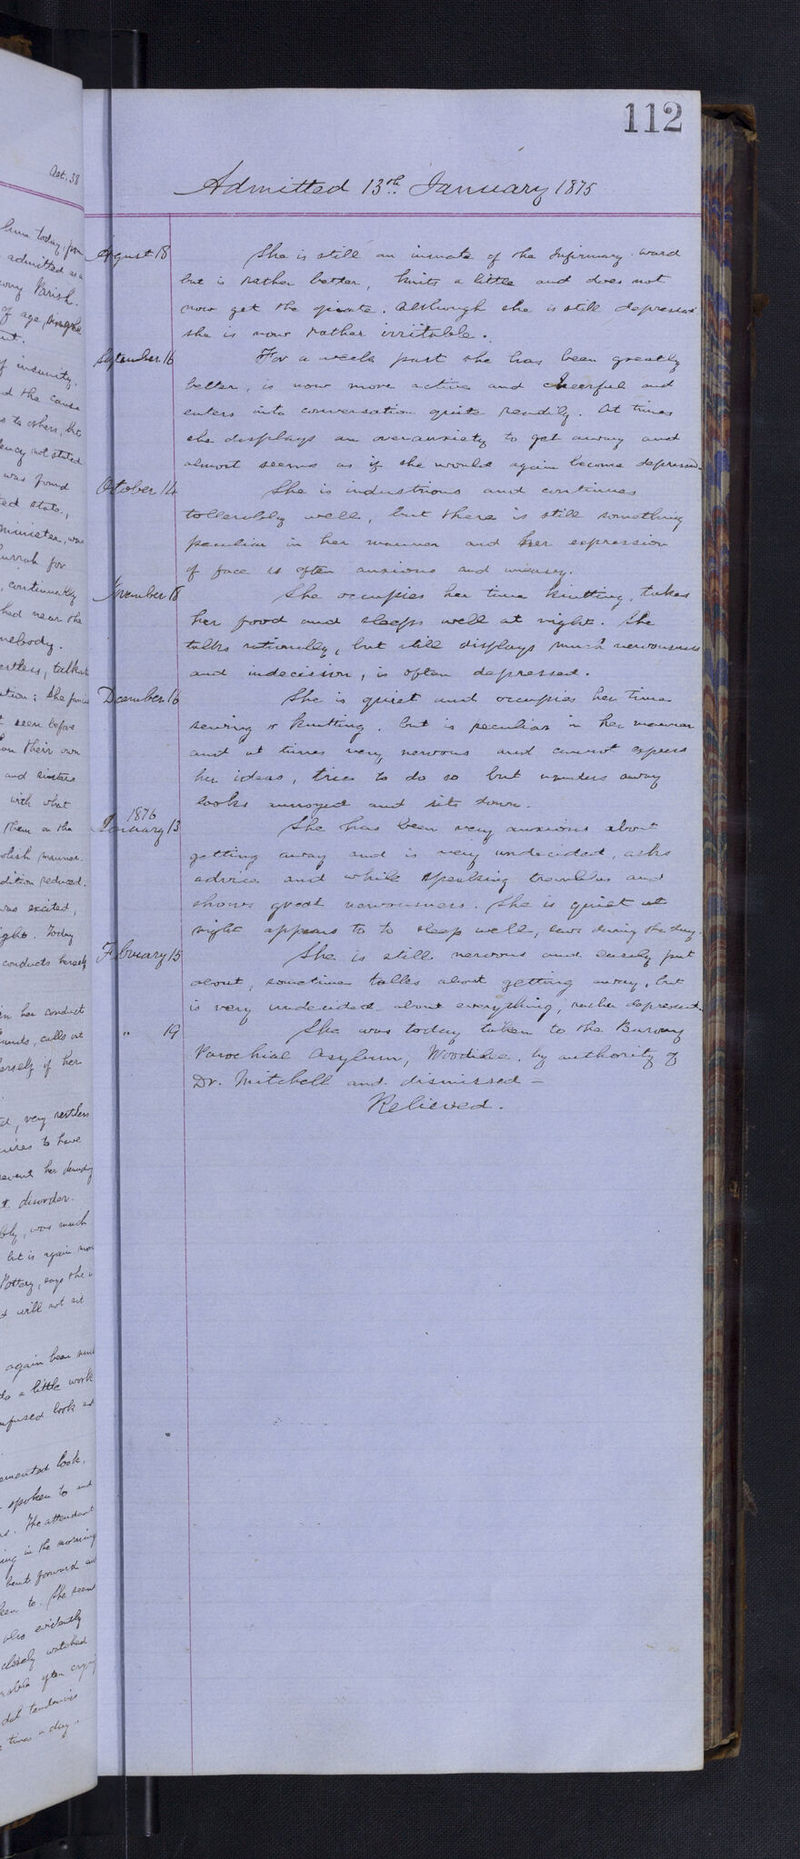 112
Admitted 13th January 1875
August 18 She is still an inmate of the Infirmary ward
but is rather better, knits a little and does not
now get the opiate. Although she is still depressed
she is now rather irritable.
September 16 For a week past she has been greatly
better, is now more active and cheerful and
enters into conversation quite readily. At times
she displays an overanxiety to get away and
almost seems as if she would again become depressed.
October 14 She is industrious and continues
tollerably well, but there is still something
peculiar in her manner and her expression
of face is often anxious and uneasy.
November 18 She occupies her time knitting, takes
her food and sleeps well at night. She
talks rationally, but still displays much nervousness
and indecision, is often depressed.
December 16 She is quiet and occupies her time
sewing or knitting. but is peculiar in her manner
and at times very nervous and cannot express
her ideas, tries to do so but wanders away
looks annoyed and sits down.
1876
January 13 She has been very anxious about
getting away and is very undecided, asks
advice and while speaking trembles and
shows great nervousness. She is quiet at
night appears to to sleep well, sews during the day.
February 15 She is still nervous and easily put
about, sometimes talks about getting away, but
is very undecided about everything, rather depressed.
" 19 She was today taken to the Barony
Parochial Asylum, Woodilee. by authority of
Dr. Mitchell and dismissed –
Relieved.
Aet. 38
admitted as a
Parish.
of age, single
of insanity.
d the cause
s to others, but
not stated
was found
ted state,
minister, was
for
, continually
hed near the
mebody.
restless, talks
; She
t seen before
on their own
and sisters
with what
them in the
manner.
dition reduced.
was excited,
ight. Today
conducts herself
in her conduct
calls out
herself if her
d, very restless
to have
event her
t disorder.
was much
but is again
Pottery, says she
d will not eat
again been
do a little work
nfused look and
emented look,
spoken to and
s. The attendant
ing in the morning
bent forward and
ken to. She
also evidently
closely watched
often
dal tendencies
times a day.